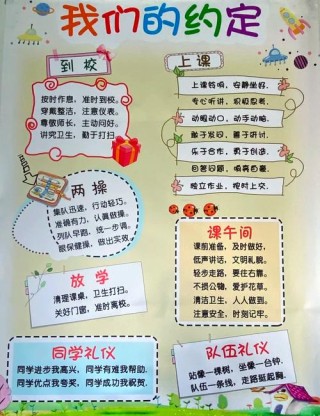 我们的约定
到校
按时作息，准时到校。
穿戴整洁，注意仪表。
尊敬师长，主动问好。
讲究卫生，勤于打扫。
上课
上课铃响，安静坐好。
专心听讲，积极思考。
动眼动口，动手动脑。
敢于发问，善于研讨。
乐于合作，勇于创造。
回答问题，响亮自量。
独立作业，按时上交。
两操
集队迅速，行动轻巧。
准确有力，认真做操。
列队早跑，统一步调。
眼保健操，做出实效。
课午间
课前准备，及时做好，
低声讲话，文明礼貌。
轻步走路，要往右靠。
不损公物，爱护花草。
清洁卫生，人人做到。
注意安全，时刻记牢。
放学
清理课桌，卫生打扫。
关好门窗，准时离校。
同学礼仪
同学进步我高兴，同学有难我帮助，
同学优点我夸奖，同学成功我祝贺。
队伍礼仪
站像一棵树，坐像一台钟，
队伍一条线，走路挺起胸。